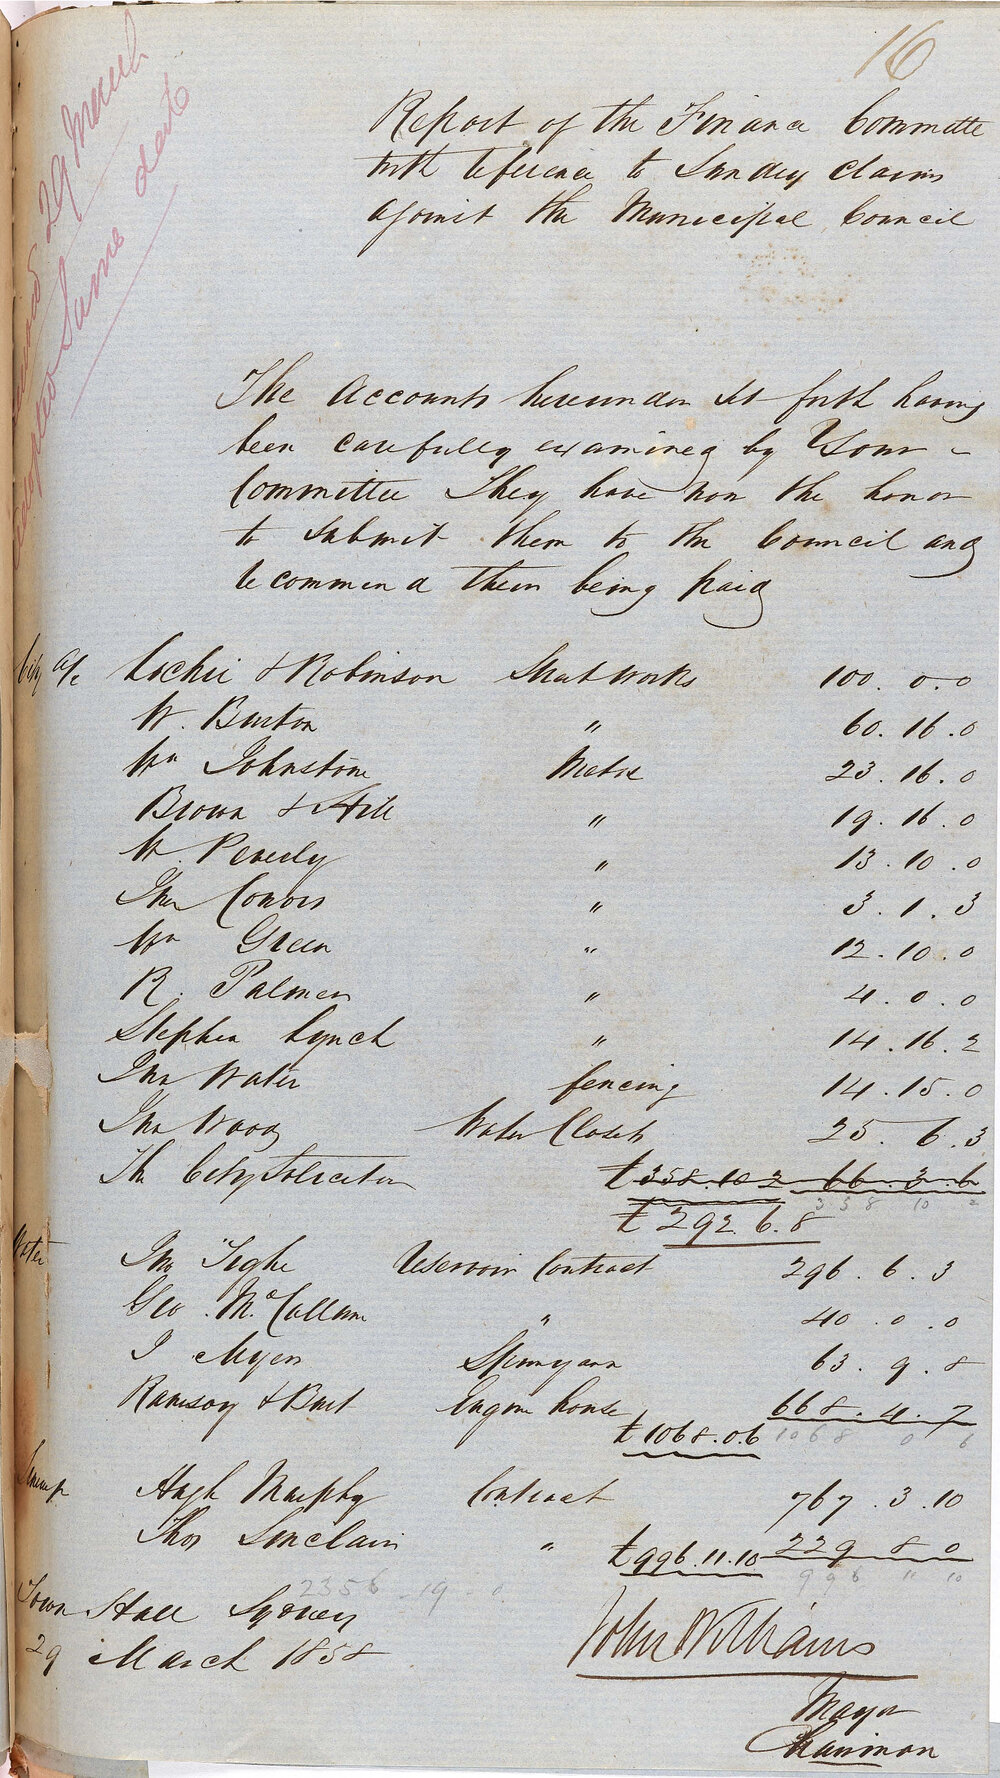 16
29 March
Same date
Report of the Finance Committee
with reference to Sundry claims
against the Municipal Council
The Accounts hereunder set forth having
been carefully examined by Your -
Committee They have now the honor
to submit them to the Council and
recommend them being paid
City a/c Lochie & Robinson Street Works 100. 0. 0
W. Burton " 60. 16. 0
Wm Johnstone Metal 23. 16. 0
Brown & Hill " 19. 16. 0
W. Peverly " 13. 10. 0
Jno Conors " 3. 1. 3
Wm Green " 12. 10. 0
R. Palmer " 4. 0. 0
Stephen Lynch " 14. 16. 2
Jno Water fencing 14. 15. 0
Jno Wood Water Closets 25. 6. 3
The City Solicitor £358. 10 2 66. 3. 6
358 10 2
£292. 6. 8
Water Jno Tighe Reservoir Contract 296. 6. 3
Geo. McCallum " 40. 0. 0
J Myers Spunyarn 63. 9. 8
Ramsay & Burt Engine house 668. 4. 7
£1068. 0. 6 1068 0 6
Hugh Murphy Contract 767. 3. 10
Thos Sinclair " £996. 11. 10 229 8 0
996 " 10
2356 19 0
Town Hall Sydney
29 March 1858
John Williams
Mayor
Chairman